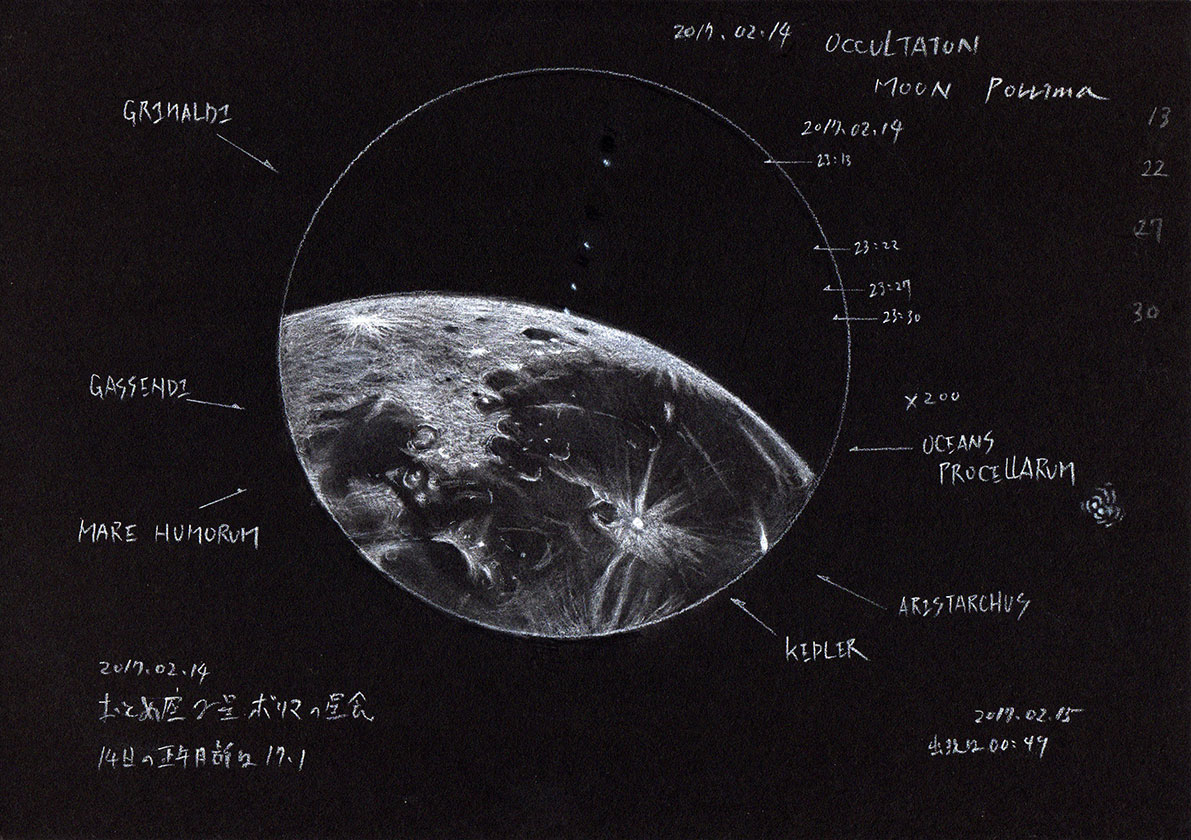 2017.02.14 OCCULTATON
MOON Porrima
GRIMALDI
2017.02.14
23:13
13
22
23:22
27
23:27
23:30
30
GASSENDI
×200
OCEANS
PROCELLARUM
MARE HUMORUM
ARISTARCHUS
KEPLER
2017.02.14
おとめ座 γ星 ポリマの星食
14日の正午月齢は 17.1
2017.02.15
出現は 00:49